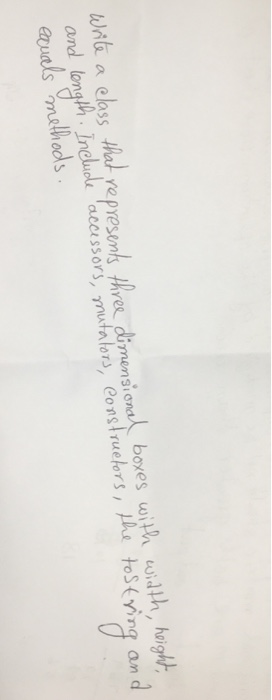 Write a class that represents three dimensional boxes with width, height,
and length. Include accessors, mutators, constructors, the toString and
equals methods.